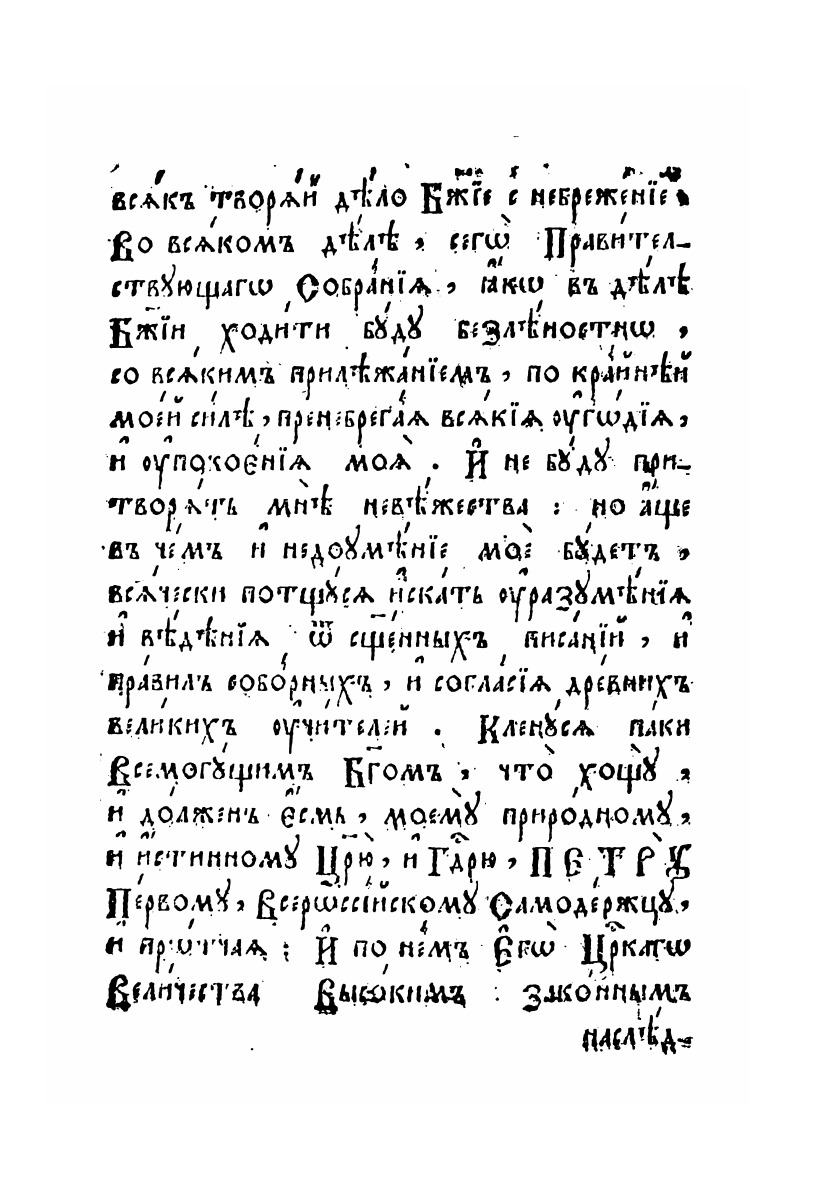 всѧ́къ творѧ́й дѣ́ло Бж҃їе с небреже́нїемъ
Во всѧ́комъ дѣ́лѣ, сегѡ̀ Правител-
ствꙋющагѡ Собра́нїѧ, ꙗ҆́кѡ въ дѣ́лѣ
Бж҃їи ходи́ти бꙋ́дꙋ безлѣ́ностнѡ,
со всѧ́кимъ прилѣжа́нїемъ, по кра́йнѣй
мое́й си́лѣ, пренебрега́ѧ всѧ́кїѧ ᲂу҆гѡ́дїѧ,
и҆ ᲂу҆покое́нїѧ моѧ̀. И҆ не бꙋ́дꙋ при-
творѧ́ть мнѣ̀ невѣ́жества: но а҆́ще
въ че́мъ и҆ недоꙋмѣ́нїе моѐ бꙋ́детъ,
всѧ́чески потщꙋ́сѧ и҆ска́ть ᲂу҆разꙋмѣ́нїѧ
и҆ вѣ́дѣнїѧ ѿ сщ҃е́нныхъ писа́нїй, и҆
пра́вилъ собо́рныхъ, и҆ согла́сїѧ дре́внихъ
вели́кихъ ᲂу҆чи́телей. Кленꙋ́сѧ па́ки
Всемогꙋ́щимъ Бг҃омъ, что̀ хощꙋ̀,
и҆ до́лженъ є҆́смь, моемꙋ̀ приро́дномꙋ,
и҆ и҆́стинномꙋ Цр҃ю̀, и҆ Гд҃рю, ПЕТРꙊ̀
Пе́рвомꙋ, Всерѡссі́йскомꙋ Самоде́ржцꙋ,
и҆ прѡ́тчаѧ: И҆ по не́мъ Є҆гѡ̀ Цр҃кагѡ
Вели́чества Высо́кимъ законнымъ
наслѣ́д-